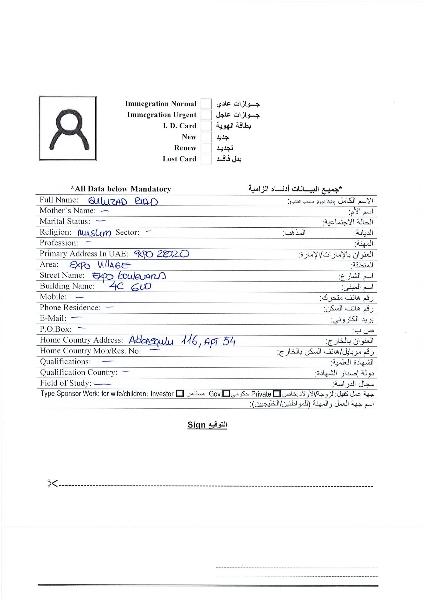 Immegration Normal جـــوازات عادي
Immegration Urgent جـــوازات عاجل
I. D. Card بطاقة الهوية
New جديد
Renew تجديد
Lost Card بدل فاقد
*All Data below Mandatory *جميع البيانات أدناه الزامية
Full Name: الإسم الكامل
Mother's Name: – اسم الأم:
Marital Status: – الحالة الاجتماعية:
Religion: Muslim Sector: – المذهب: الديانة:
Profession: – المهنة:
Primary Address In UAE: العنوان بالإمارات/الإمارة:
Area: EXPO VILLAGE المنطقة:
Street Name: EXPO BOULEVARD اسم الشارع:
Building Name: 4C اسم المبنى:
Mobile: – رقم هاتف متحرك:
Phone Residence: – رقم هاتف السكن:
E-Mail: – بريد الكتروني:
P.O.Box: – ص.ب:
Home Country Address: 116, APT 54 العنوان بالخارج:
Home Country Mob/Res. No – رقم موبايل/هاتف السكن بالخارج:
Qualifications – الشهادة العلمية:
Qualification Country: – دولة إصدار الشهادة:
Field of Study: – مجال الدراسة:
Type Sponsor Work: for wife/children: Investor مستثمر Gov حكومي Private خاص جهة عمل كفيل الزوجة/الأولاد
اسم جهة العمل والمهنة (للمواطنين/الخليجيين):
Sign التوقيع